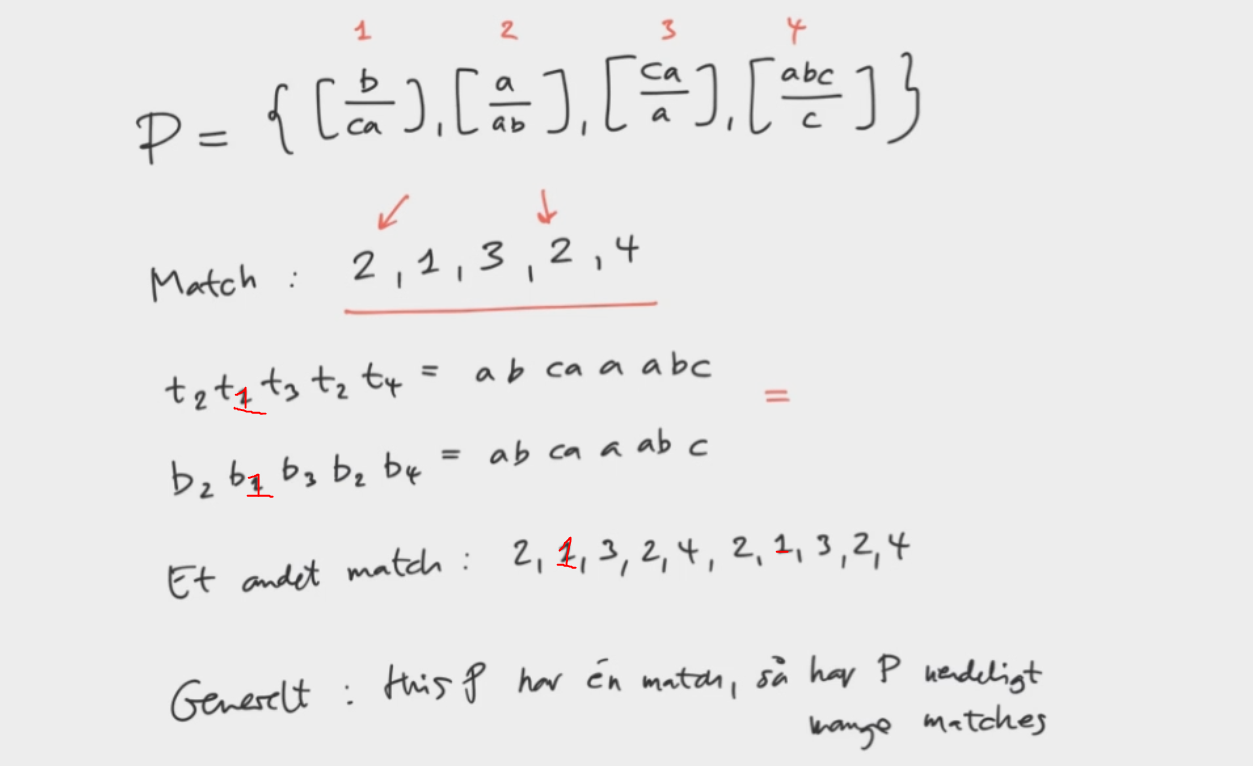 1 2 3 4
P = { [b/ca], [a/ab], [ca/a], [abc/c] }
Match : 2, 1, 3, 2, 4
t₂ t₁ t₃ t₂ t₄ = ab ca a abc
=
b₂ b₁ b₃ b₂ b₄ = ab ca a ab c
Et andet match : 2, 1, 3, 2, 4, 2, 1, 3, 2, 4
Generelt : Hvis P har én match, så har P uendeligt
mange matches